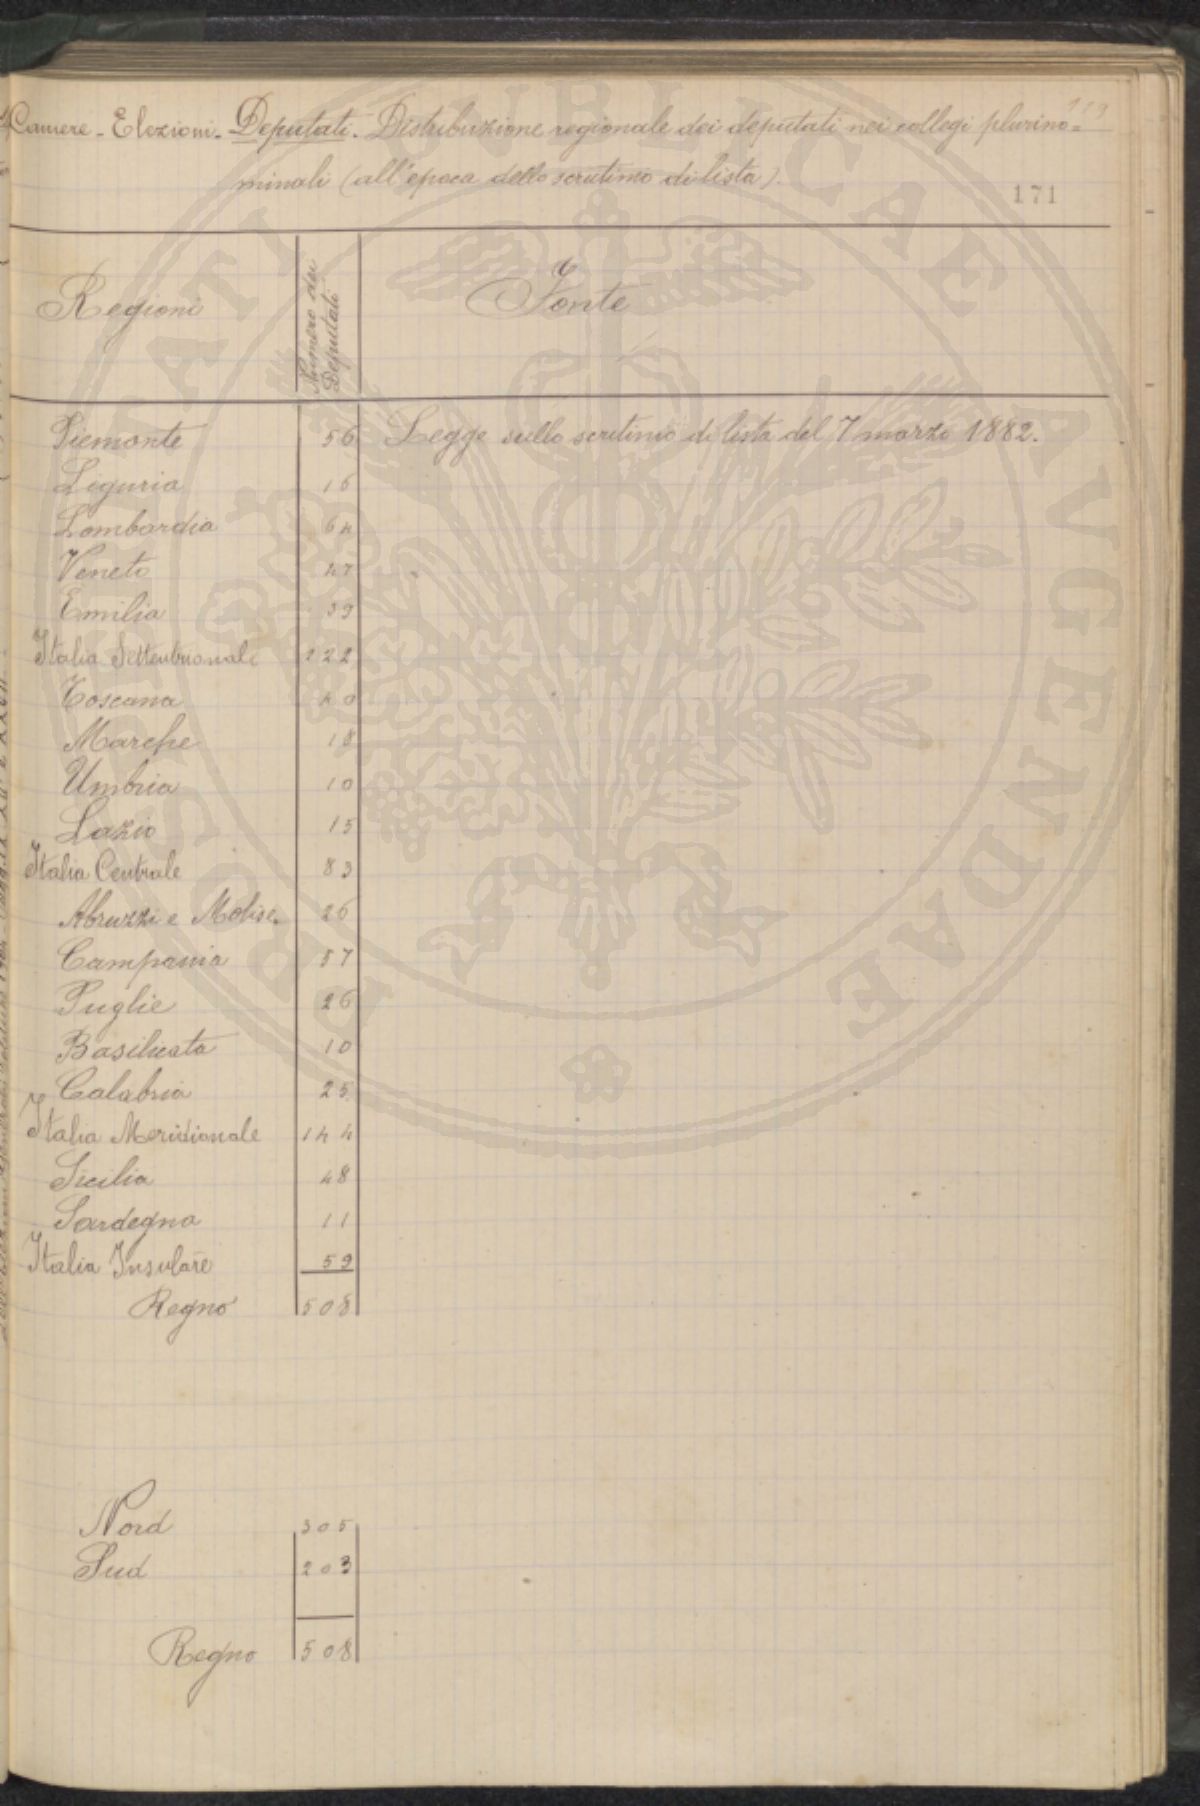 119
Camere - Elezioni - Deputati. Distribuzione regionale dei deputati nei collegi plurino=
minali (all'epoca dello scrutinio di lista).
171
Regioni Numero dei Deputati Fonte
Piemonte 56 Legge sullo scrutinio di lista del 7 marzo 1882.
Liguria 16
Lombardia 64
Veneto 47
Emilia 39
Italia Settentrionale 222
Toscana 40
Marche 18
Umbria 10
Lazio 15
Italia Centrale 83
Abruzzi e Molise 26
Campania 57
Puglie 26
Basilicata 10
Calabria 25
Italia Meridionale 144
Sicilia 48
Sardegna 11
Italia Insulare 59
Regno 508
Nord 305
Sud 203
Regno 508
REI PUBLICAE AVGENDAE